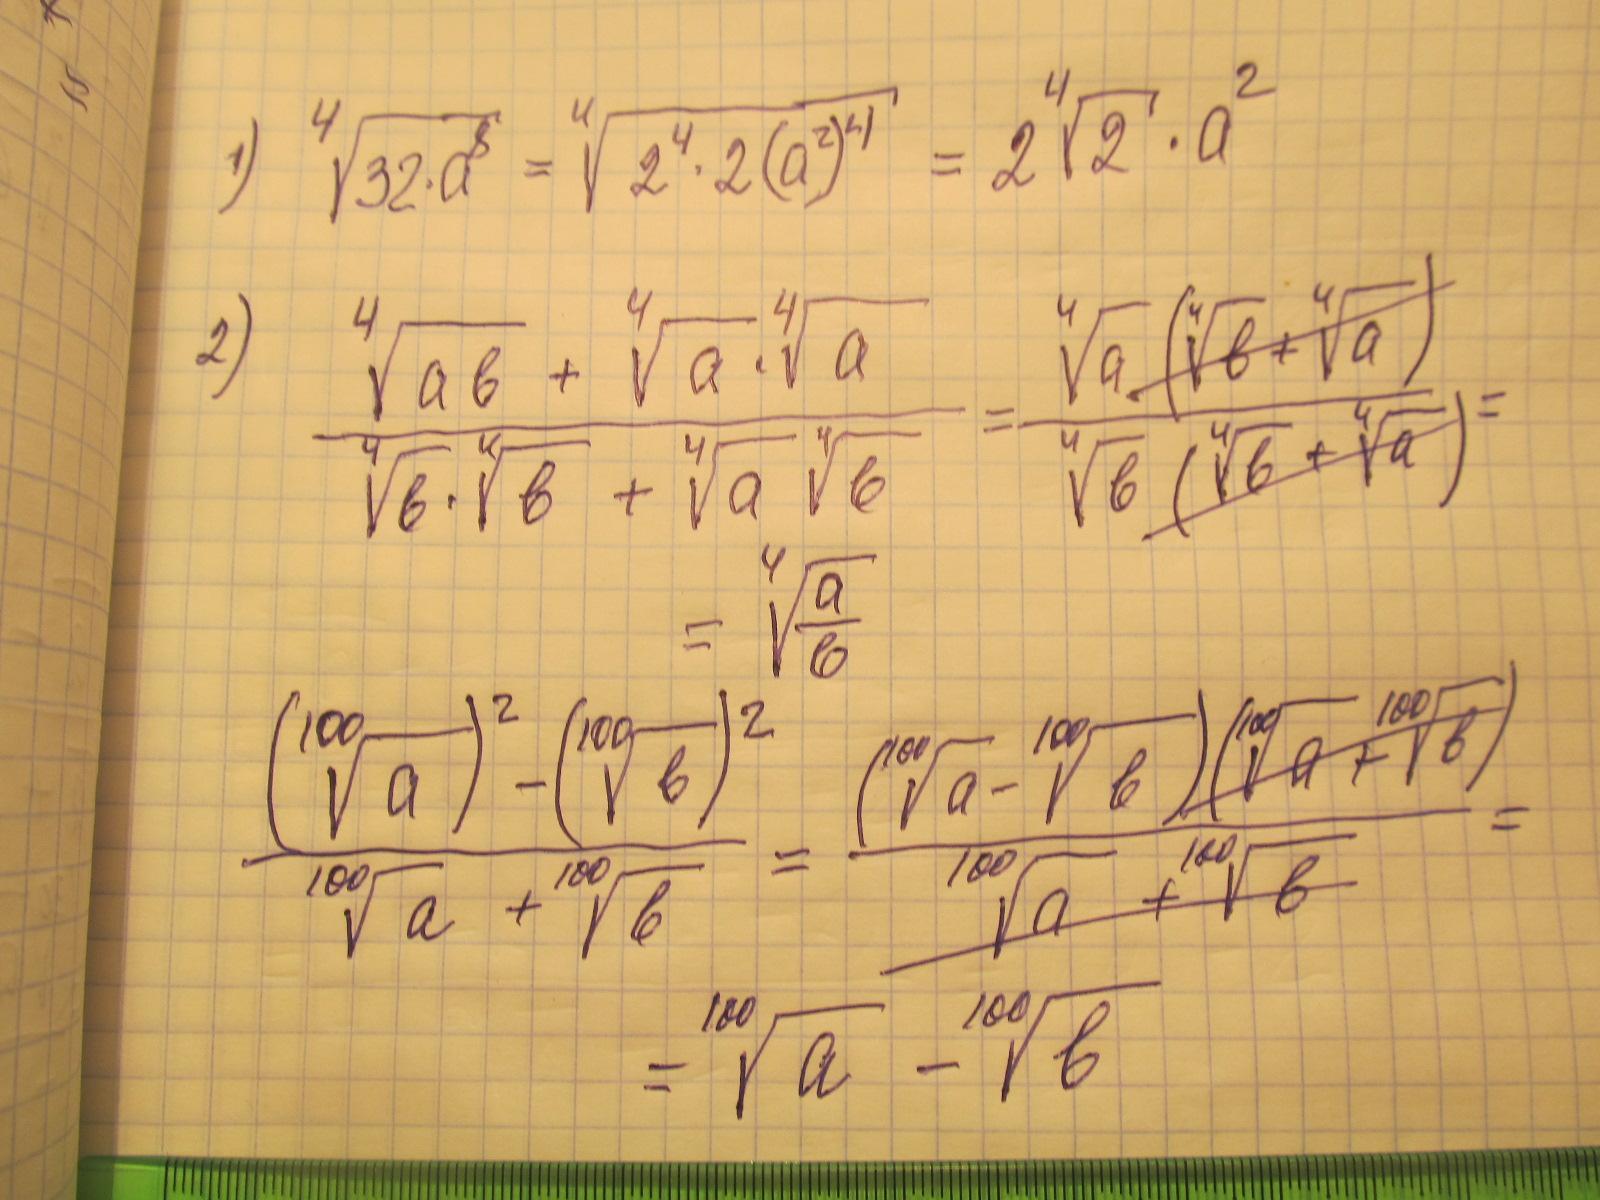 1) ⁴√(32·a⁸) = ⁴√(2⁴·2(a²)⁴) = 2 ⁴√2 · a²
2) (⁴√(ab) + ⁴√a · ⁴√a) / (⁴√b · ⁴√b + ⁴√a ⁴√b) = (⁴√a (⁴√b + ⁴√a)) / (⁴√b (⁴√b + ⁴√a)) =
= ⁴√(a/b)
((¹⁰⁰√a)² − (¹⁰⁰√b)²) / (¹⁰⁰√a + ¹⁰⁰√b) = ((¹⁰⁰√a − ¹⁰⁰√b)(¹⁰⁰√a + ¹⁰⁰√b)) / (¹⁰⁰√a + ¹⁰⁰√b) =
= ¹⁰⁰√a − ¹⁰⁰√b